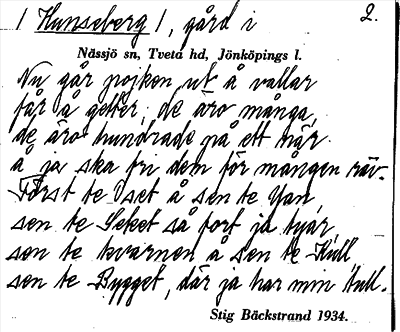 / Hunseberg /, gård i 2.
Nässjö sn, Tveta hd, Jönköpings l.
Nu går pojken ut å vallar
får å getter, de äro många,
de äro hundrade på ett när
å ja ska fri dem för mången räv.
Först te Oset å sen te Yan,
sen te Seket så fort ja tyár,
sen te kvarnen å sen te Kull,
sen te Bygget, där ja har min tull.
Stig Bäckstrand 1934.